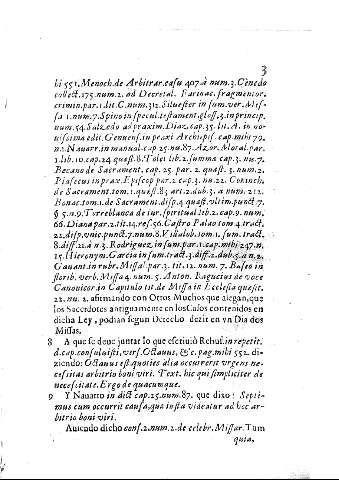 3
bi 551. Menoch. de Arbitrar. casu 407. à num. 3. Cenedo
collect. 175. num. 2. ad Decretal. Farinac. fragmentor.
crimin. par. 1. lit. C. num. 312. Siluester in sum. ver. Mis-
sa 1. num. 7. Spino in specul. testament. gloss. 3. in princip.
num. 54. Salzedo ad praxim. Diaz. cap. 35. lit. A. in no-
uissima edit. Genuens. in praxi Archiepis. cap. mihi 79.
n. 2. Nauarr. in manual. cap. 25. nu. 87. Azor. Moral. par.
1. lib. 10. cap. 24 quæst. 8. Tolet lib. 2. summæ cap. 3. nu. 7.
Becano de Sacrament. cap. 25. par. 2. quæst. 3. num. 2.
Piasecius in prax. Episcop. par. 2 cap. 3. nu. 22. Coninch.
de Sacrament. tom. 1. quæst. 83. art. 2. dub. 3. à num. 212.
Bonac. tom. 1. de Sacrament. disp. 4. quæst. vltim. punct. 7.
§ 5. n. 9. Torreblanca de iur. spiritual. lib. 2. cap. 9. num.
66. Diana par. 2. tit. 14. ref. 56. Castro Palao tom. 4. tract.
22. disp. vnic. punct. 7. num. 8. Villalob. tom. 1. sum. tract.
8. diff. 21. à n 3. Rodriguez in sum. par. 1. cap. mihi 247. n.
15. Hieronym. Garcia in sum. tract. 3. diff. 2. dub. 5. à n. 2.
Gauant in rubr. Missal. par. 3. tit. 12. num. 7. Baseo in
florib. verb. Missa 4. num. 5. Anton. Ragucius de voce
Canonicor. in Capitulo tit. de Missa in Ecclesia quæst.
22. nu. 2. afirmando con Otros Muchos que alegan, que
los Sacerdotes antiguamente en los casos contenidos en
dicha Ley, podian segun Derecho dezir en vn Dia dos
Missas,
8 A que se deue juntar lo que escriuiò Rebuf. in repetit.
d. cap. consuluisti, vers. Octauus, &c. pag. mihi 552. di-
ziendo: Octauus est quoties alia occurerit vrgens ne-
cessitas arbitrio boni viri. Text. hic qui simpliciter de
necessitate. Ergo de quacumque.
9 Y Nauarro in dict. cap. 25. num. 87. que dixo: Septi-
mus cum occurrit causa, quæ iusta videatur ad hoc ar-
bitrio boni viri.
Auicado dicho cons. 2. num. 2. de celebr. Missar. Tum
quia,